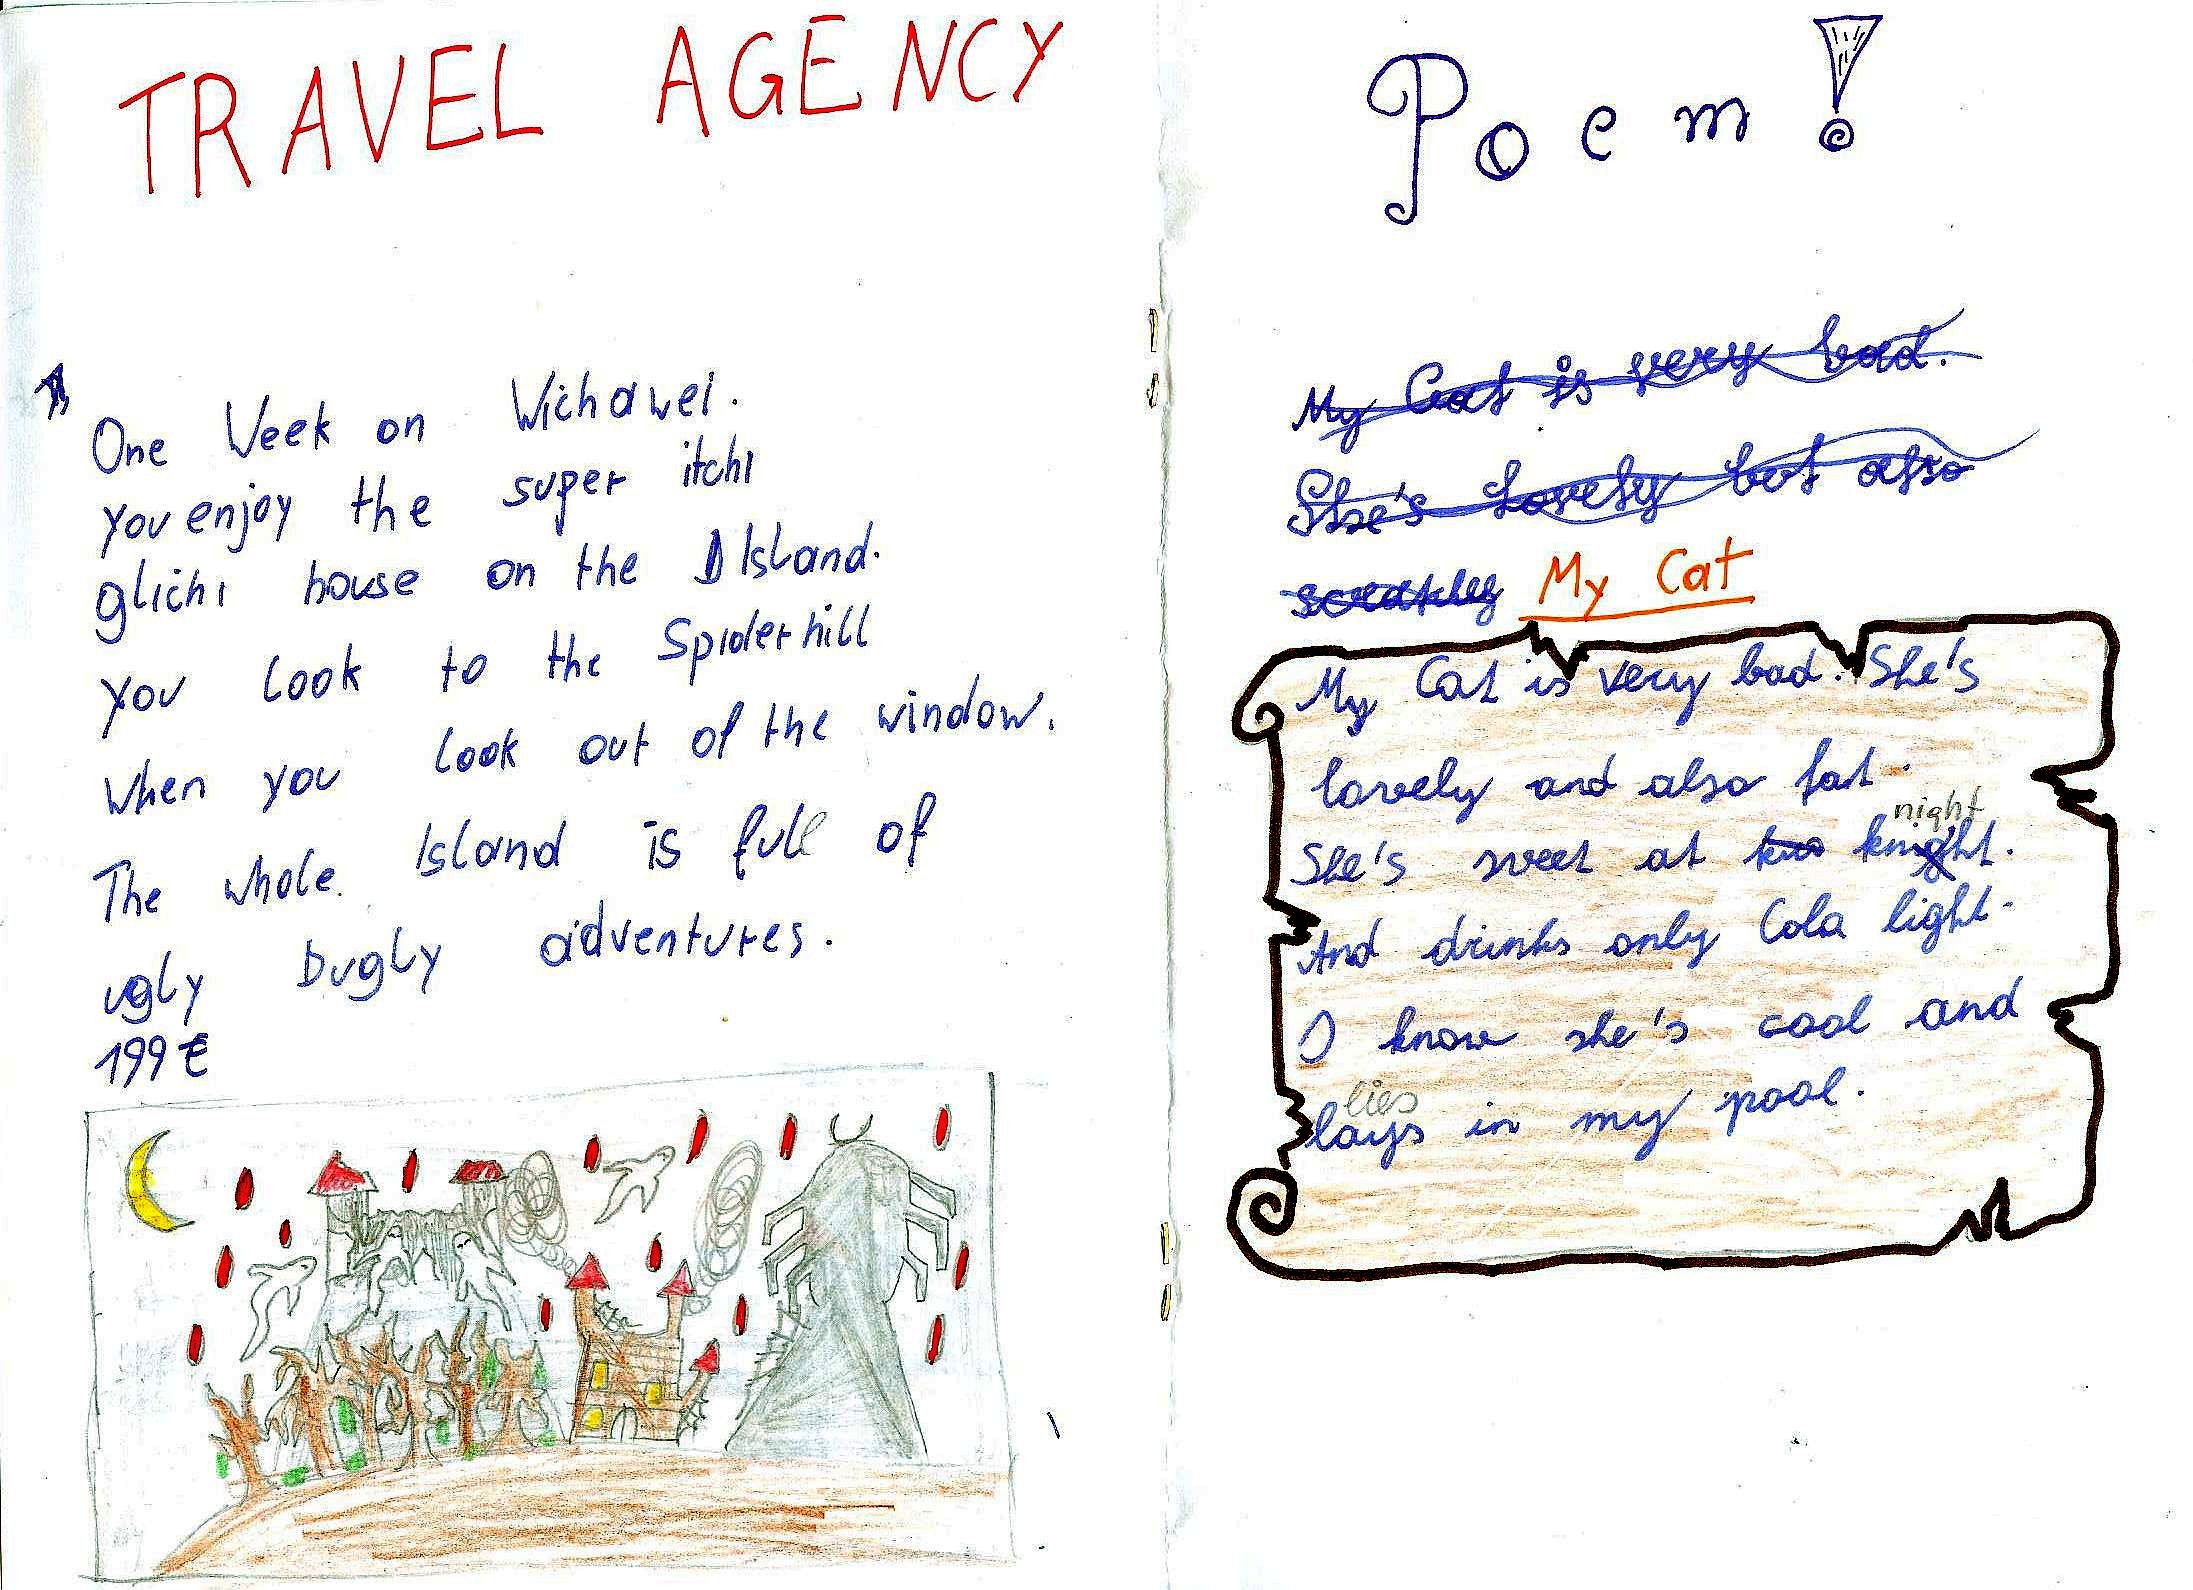 TRAVEL AGENCY
One Week on Wichawei.
you enjoy the super itchi
glichi house on the Island.
you look to the Spiderhill
when you look out of the window.
The whole Island is full of
ugly Dugly adventures.
199 €
Poem!
My Cat is very bad.
She's lovely but also
My Cat
My Cat is very bad. She's
lovely and also fat.
night
She's sweet at knight.
And drinks only Cola light.
I know she's cool and
lies
lays in my pool.